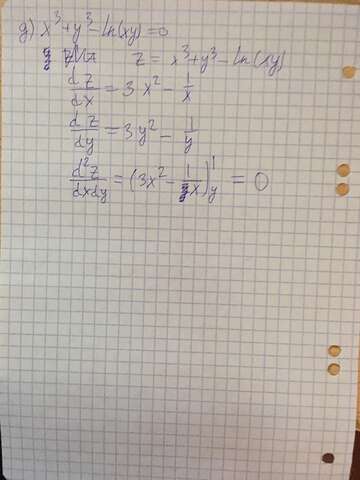 g) x³+y³-ln(xy)=0
z = x³+y³-ln(xy)
dz/dx = 3x² - 1/x
dz/dy = 3y² - 1/y
d²z/dxdy = (3x² - 1/x)'y = 0